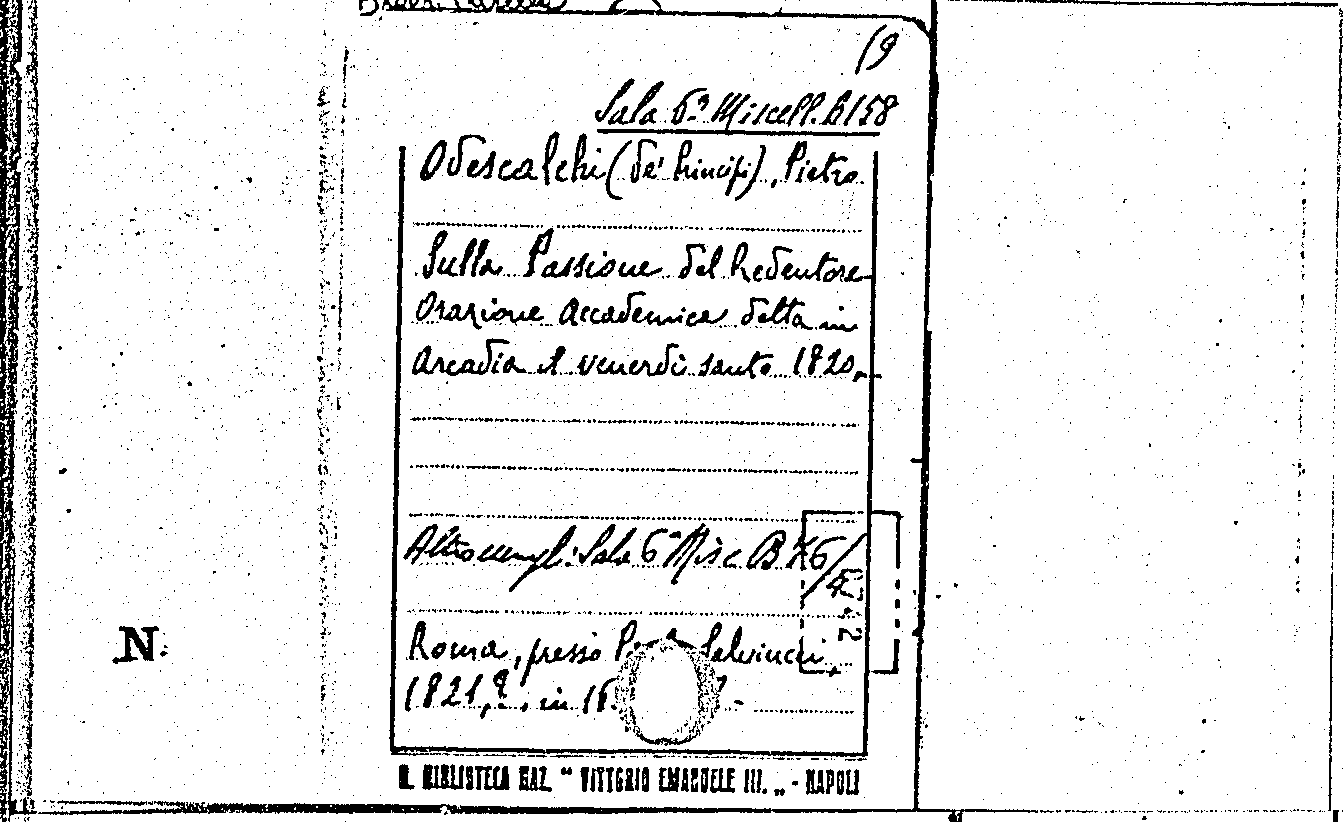 (9
Sala 6ª Miscell. B 158
Odescalchi (de' Principi), Pietro
Sulla Passione del Redentore
Orazione Accademica detta in
Arcadia il venerdì santo 1820,
Altro esempl: Sala 6ª Misc B
Roma, presso Salviucci,
1821, 8., in 16.
N.
R. BIBLIOTECA NAZ. "VITTORIO EMANUELE III." - NAPOLI